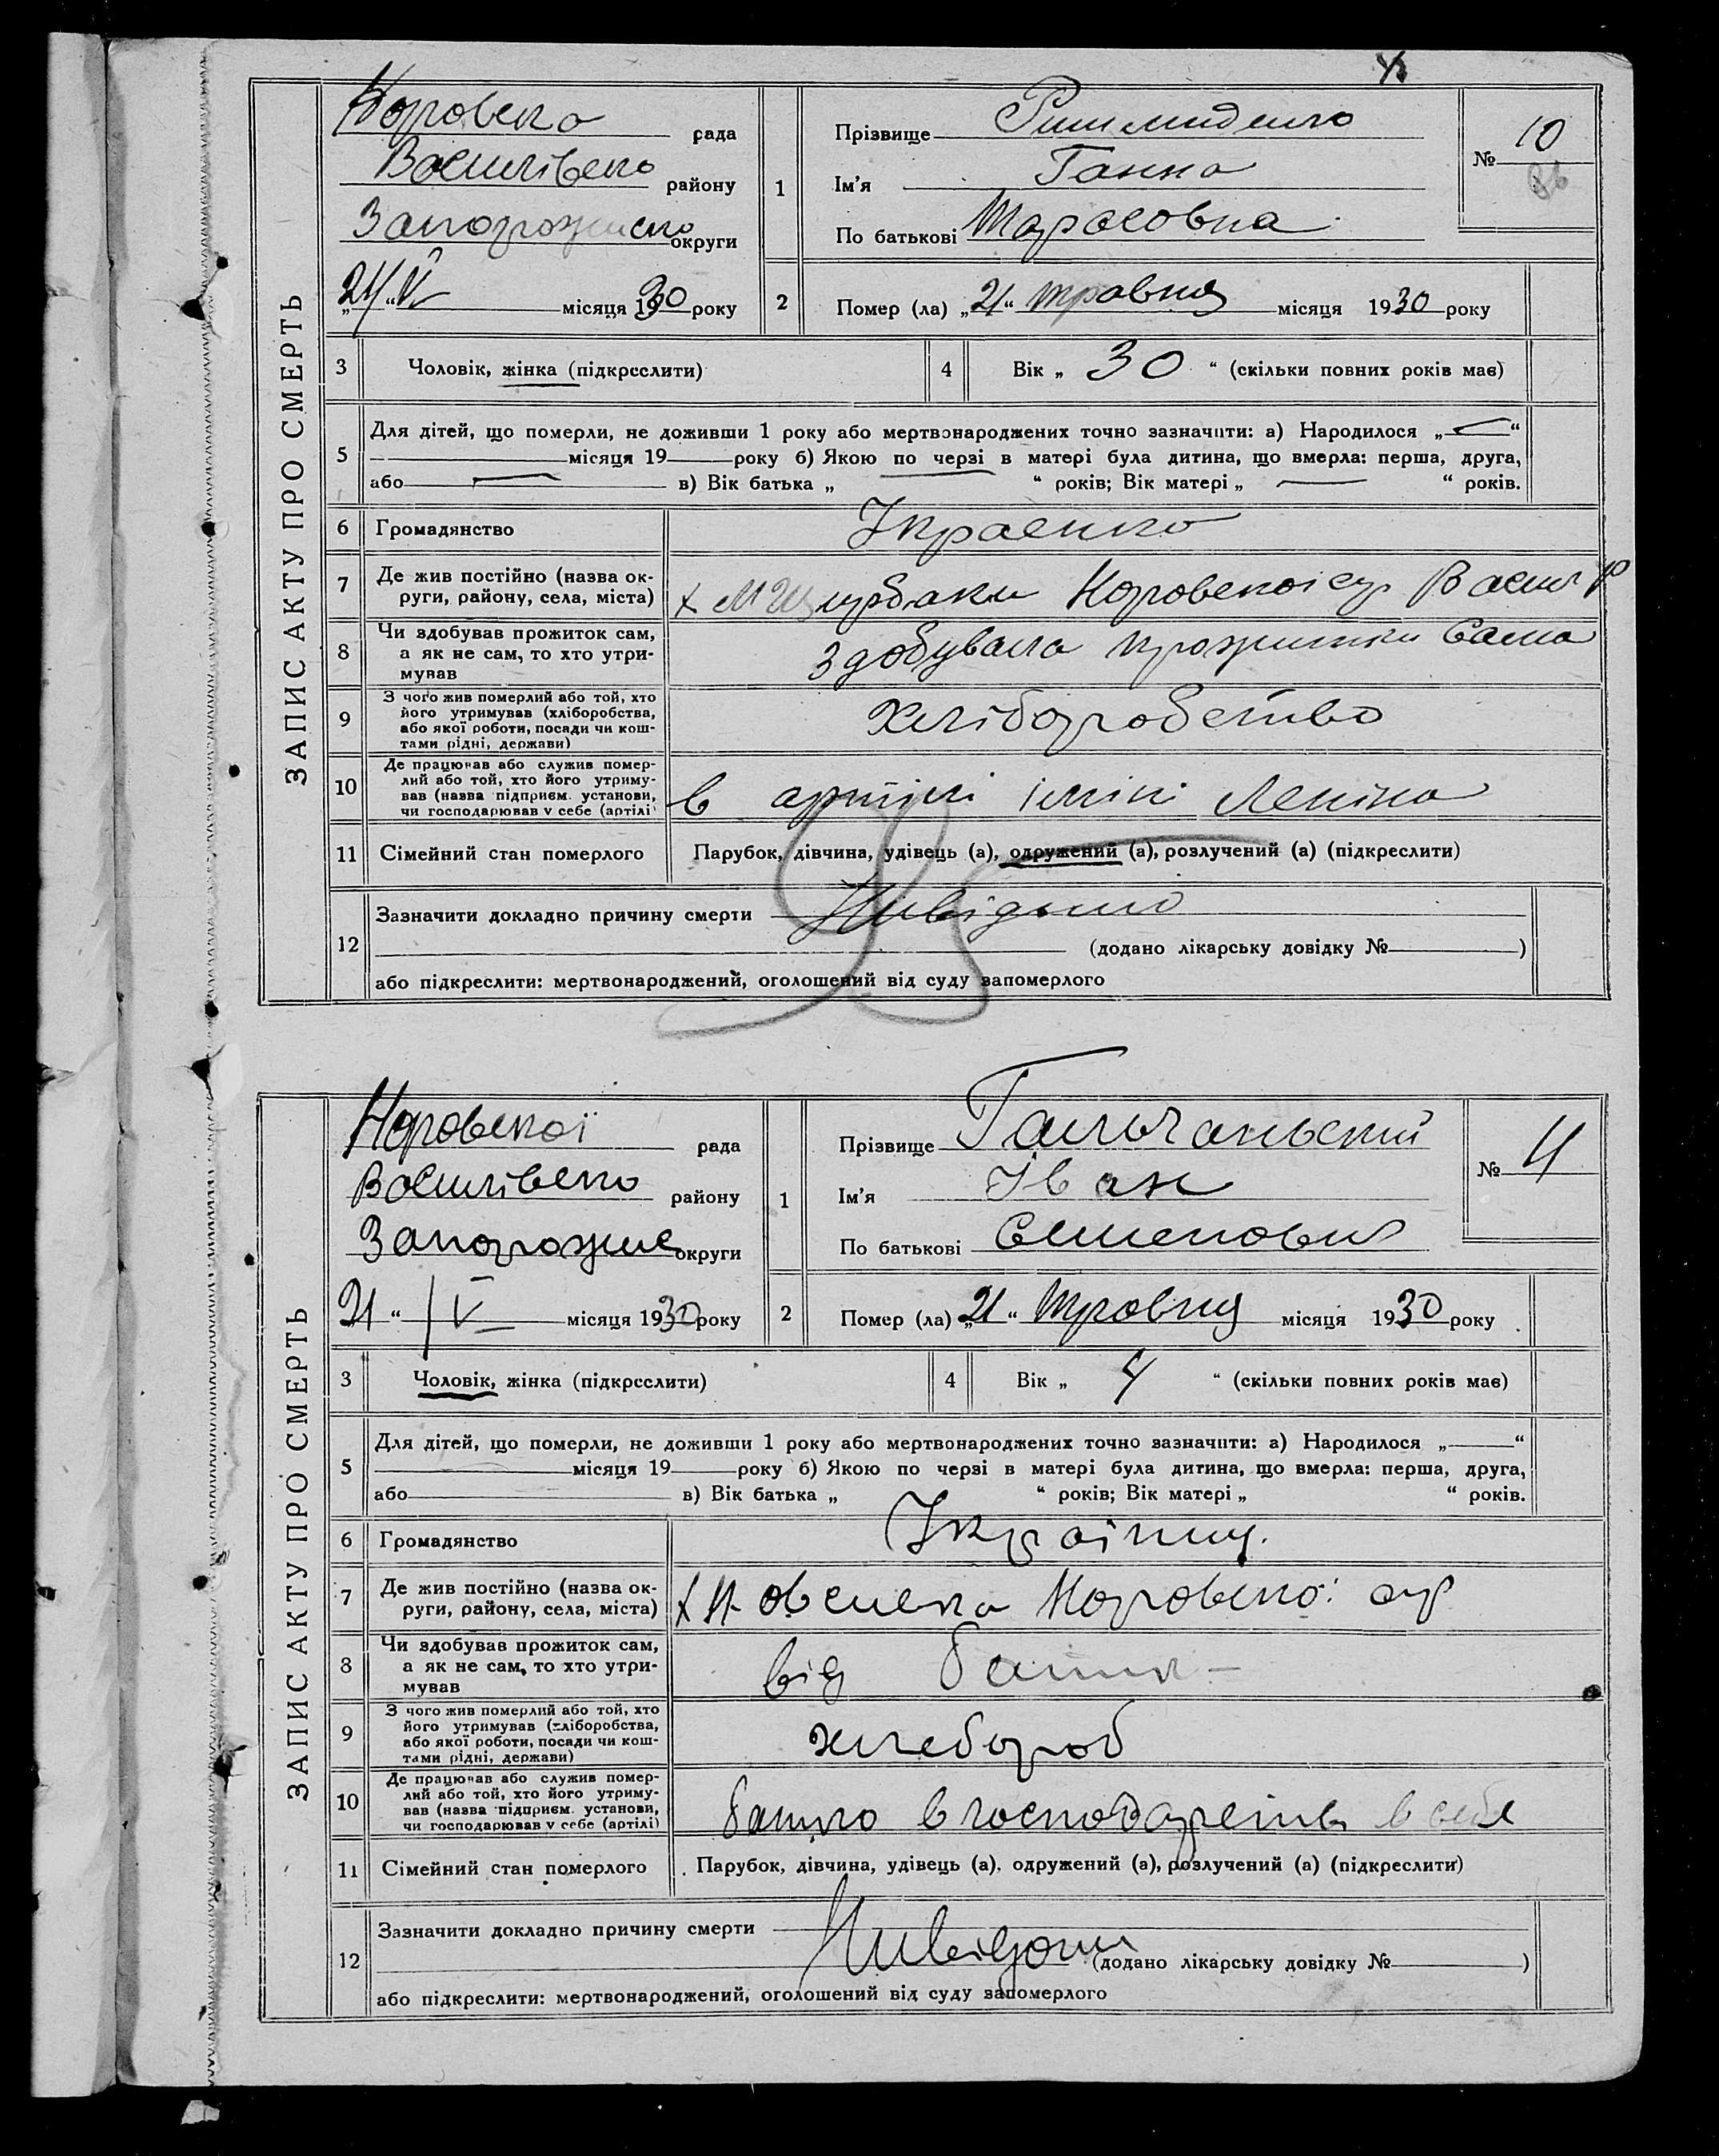 ЗАПИС АКТУ ПРО СМЕРТЬ
рада
Василівсько району
Запорожско округи
V місяця 1930 року
1
Прізвище
Ім'я Ганна
По батькові Тарасовна
№ 10
2
Помер (ла) „21“ травня місяця 1930 року
3 Чоловік, жінка (підкреслити)
4 Вік „ 30 “ (скільки повних років має)
5 Для дітей, що померли, не доживши 1 року або мертвонароджених точно зазначити: а) Народилося „ “
місяця 19 року б) Якою по черзі в матері була дитина, що вмерла: перша, друга,
або в) Вік батька „ “ років; Вік матері „ “ років.
6 Громадянство Украенка
7 Де жив постійно (назва ок-
руги, району, села, міста)
8 Чи здобував прожиток сам,
а як не сам, то хто утри-
мував
здобувала прожитки сама
9 З чого жив померлий або той, хто
його утримував (хліборобства,
або якої роботи, посади чи кош-
тами рідні, держави)
Хліборобство
10 Де працював або служив помер-
лий або той, хто його утриму-
вав (назва підприєм. установи,
чи господарював у себе (артілі)
в артілі імині Леніна
11 Сімейний стан померлого Парубок, дівчина, удівець (а), одружений (а), розлучений (а) (підкреслити)
12 Зазначити докладно причину смерти
(додано лікарську довідку № )
або підкреслити: мертвонароджений, оголошений від суду запомерлого
ЗАПИС АКТУ ПРО СМЕРТЬ
рада
Василівсько району
Запорожс округи
21 “ V місяця 1930 року
1
Прізвище Гальчанський
Ім'я Іван
По батькові Семенович
№ 11
2
Помер (ла) „21“ травня місяця 1930 року
3 Чоловік, жінка (підкреслити)
4 Вік „ 4 “ (скільки повних років має)
5 Для дітей, що померли, не доживши 1 року або мертвонароджених точно зазначити: а) Народилося „ “
місяця 19 року б) Якою по черзі в матері була дитина, що вмерла: перша, друга,
або в) Вік батька „ “ років; Вік матері „ “ років.
6 Громадянство Українец.
7 Де жив постійно (назва ок-
руги, району, села, міста)
8 Чи здобував прожиток сам,
а як не сам, то хто утри-
мував
від
9 З чого жив померлий або той, хто
його утримував (хліборобства,
або якої роботи, посади чи кош-
тами рідні, держави)
хлебороб
10 Де працював або служив помер-
лий або той, хто його утриму-
вав (назва підприєм. установи,
чи господарював у себе (артілі)
батько в господарстві в себе
11 Сімейний стан померлого Парубок, дівчина, удівець (а), одружений (а), розлучений (а) (підкреслити)
12 Зазначити докладно причину смерти
(додано лікарську довідку № )
або підкреслити: мертвонароджений, оголошений від суду запомерлого